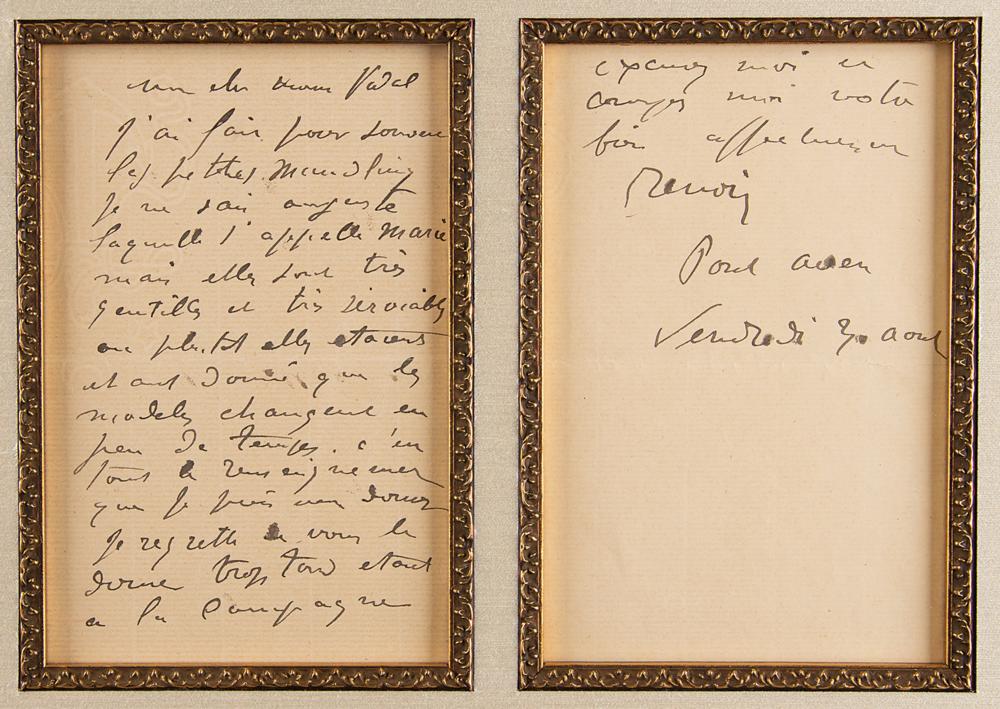 mon cher Vidal
j'ai fait poser souvent
les petites
je ne sais au juste
laquelle s'appelle Marie
mais elles sont très
gentilles et très serviables
ou plutot elles etaient
etant donné que les
modeles changent en
peu de temps. c'est
tout le renseignement
que je puis vous donner
je regrette de vous le
donner trop tard etant
a la campagne
excusez moi et
croyez moi votre
bien affectueusement
Renoir
Pont aven
Vendredi 30 aout